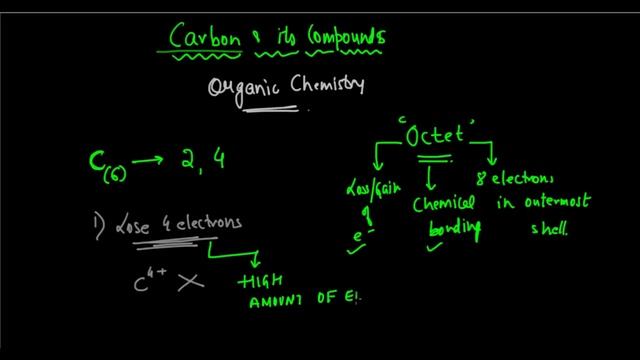 Carbon & its Compounds
Organic Chemistry
C(6) → 2, 4
"Octet"
Loss/Gain
of
e⁻
Chemical
bonding
8 electrons
in outermost
shell
1) Lose 4 electrons
C⁴⁺ ×
HIGH
AMOUNT OF E